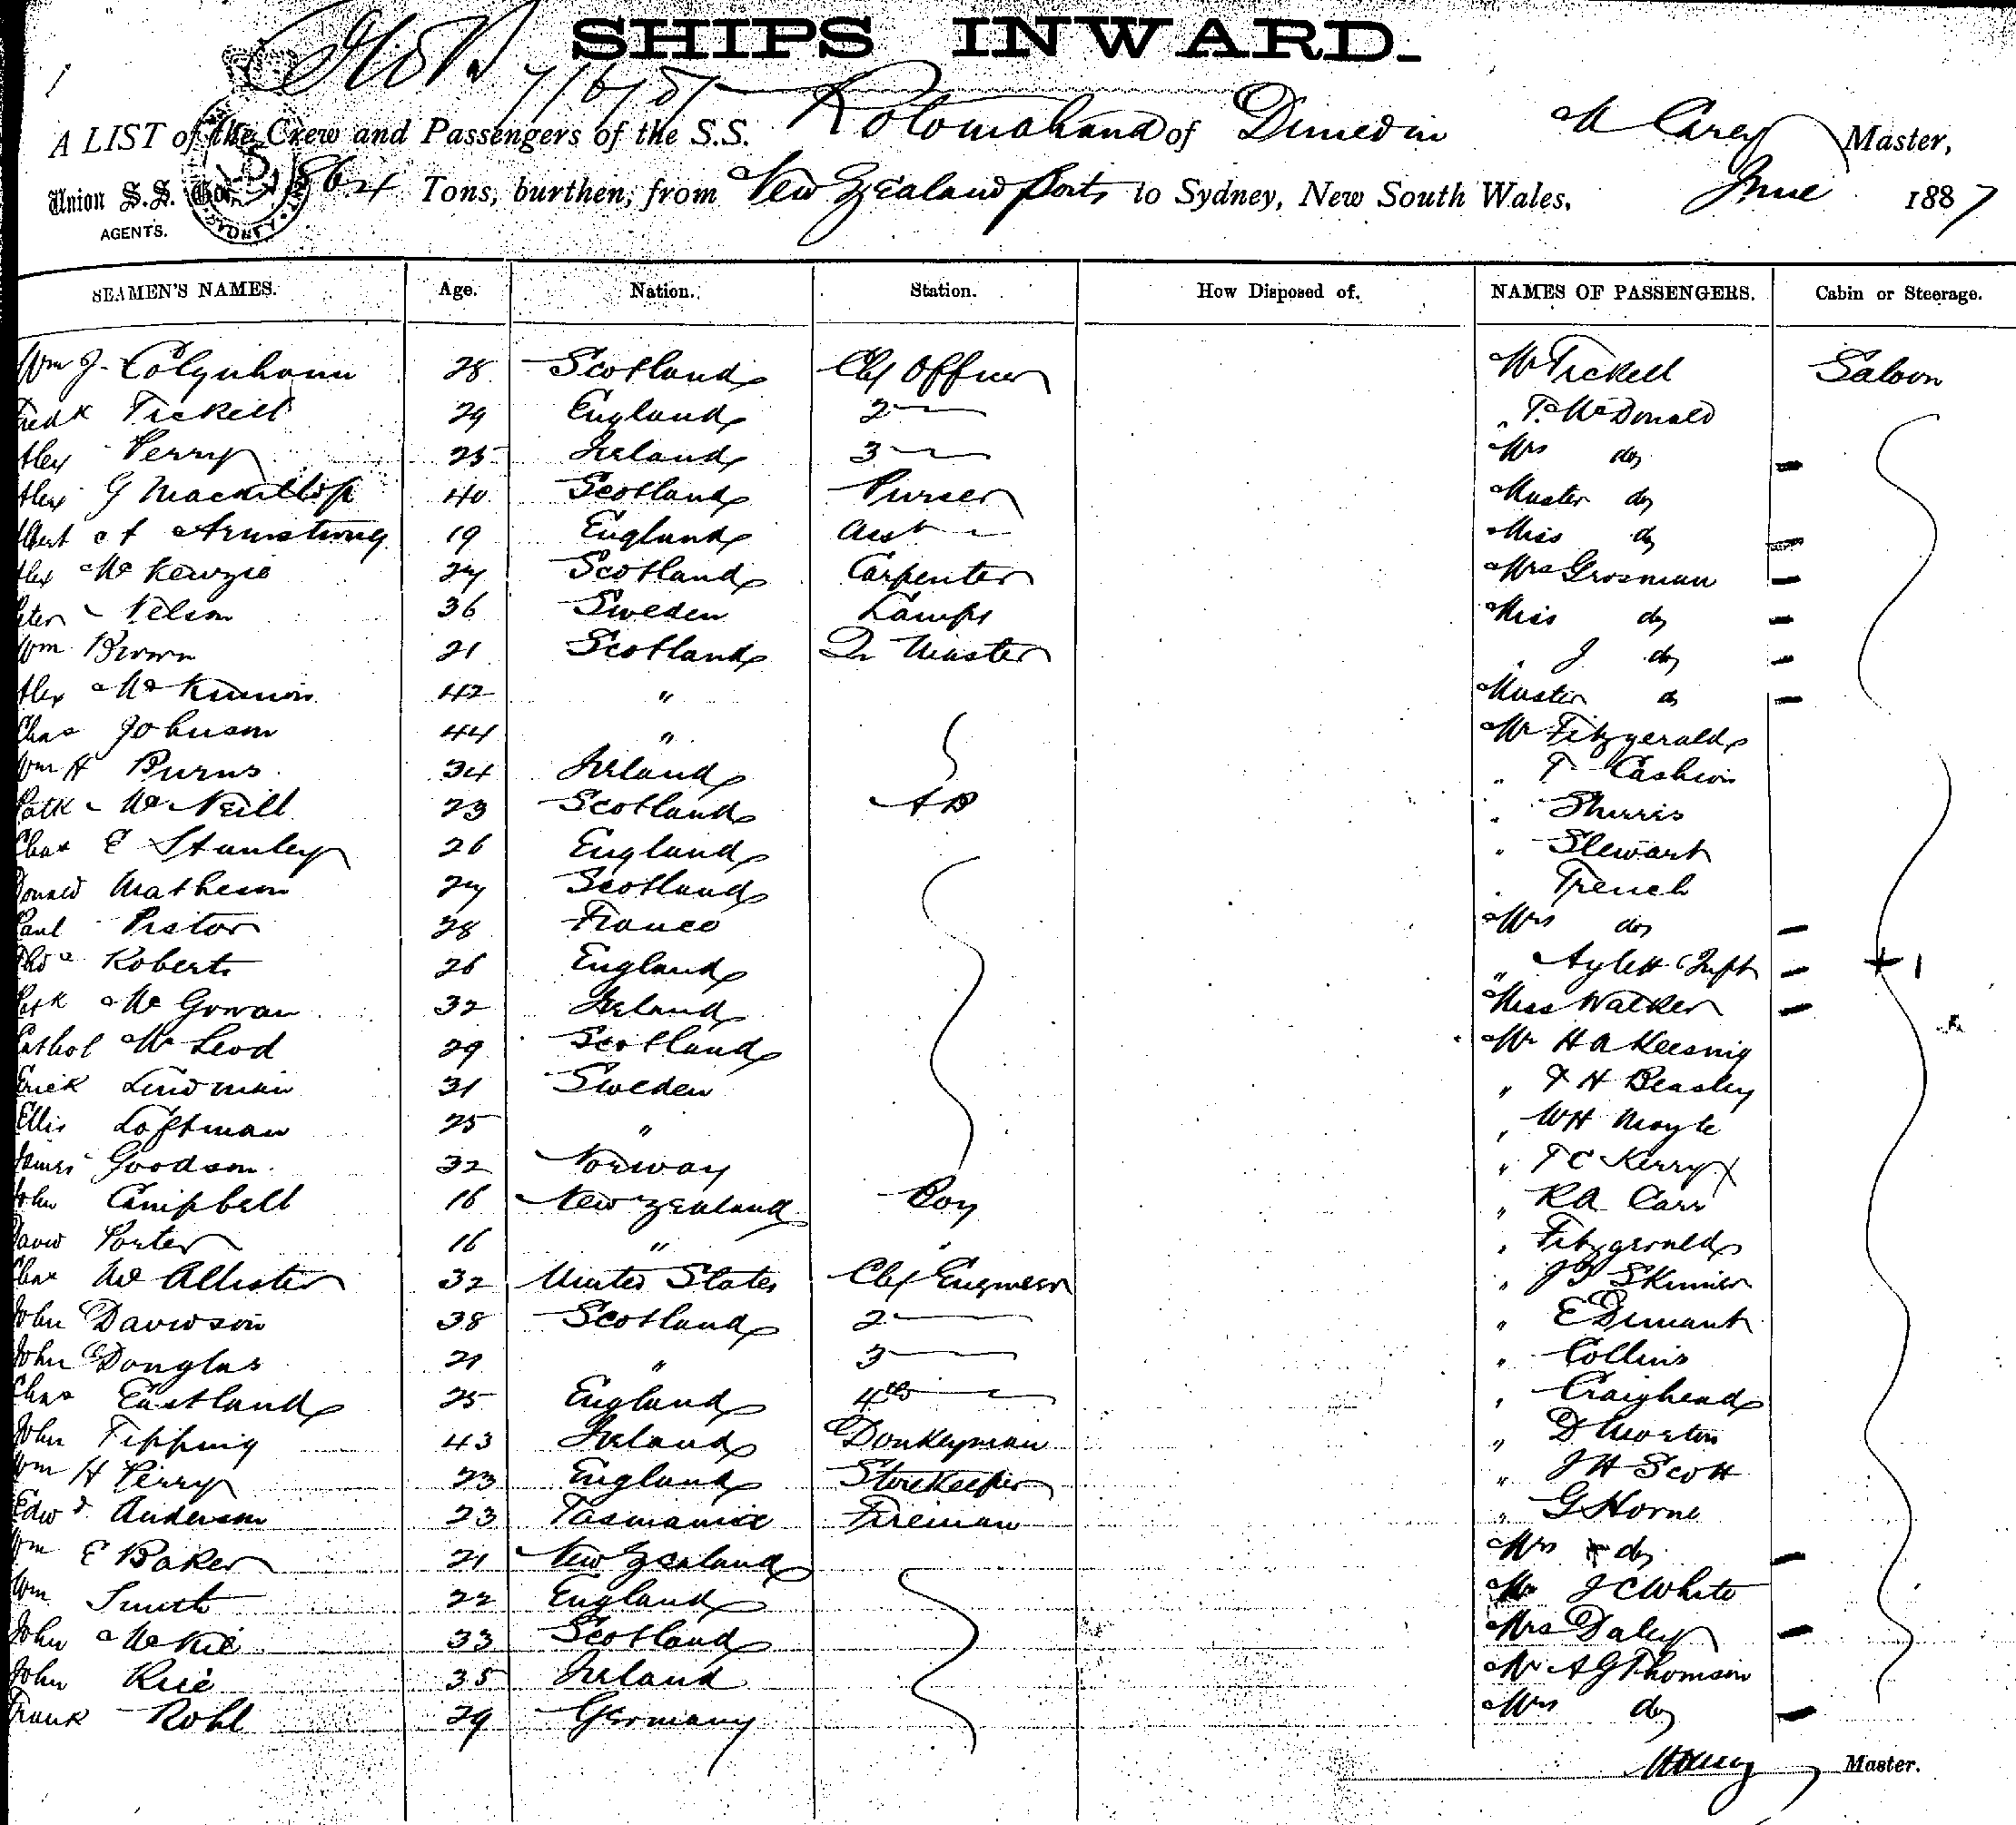 SHIPS INWARD.
A LIST of the Crew and Passengers of the S.S. Rotomahana of Dunedin M Carey Master,
Union S.S. Co. 864 Tons, burthen, from New Zealand Ports to Sydney, New South Wales, June 1887
AGENTS.
SEAMEN'S NAMES. Age. Nation. Station. How Disposed of. NAMES OF PASSENGERS. Cabin or Steerage.
Wm J. Colquhoun 28 Scotland Chf Officer Mr Tickell Saloon
Fredk Tickell 29 England 2 " T. McDonald
Alex Perry 25 Ireland 3 Mrs do
Alex G Mackillop 40 Scotland Purser Master do
Albert A Armstrong 19 England Asst Miss do
Alex McKenzie 27 Scotland Carpenter Mrs Grosman
Peter Nelson 36 Sweden Lamps Miss do
Wm Brown 21 Scotland Qr Master " J do
Alex McKinnon 42 " Master do
Chas Johnson 44 " Mr Fitzgerald
Wm H Burns 34 Ireland " T Cashion
Patk McNeill 23 Scotland AB "
Chas E Stanley 26 England " Stewart
Donald Matheson 27 Scotland " French
Paul Pistor 28 France Mrs do
Thos Roberts 26 England " Aylett & Inft + 1
Patk McGowan 32 Ireland Miss Walker
McLeod 29 Scotland Mr H A Keesing
Erick Lindman 31 Sweden " F H Beasley
Ellis Loftman 25 " " WH Moyle
James Goodson 32 Norway " T C Kerry
John Campbell 16 New Zealand Boy " R A Carr
David Porter 16 " " " Fitzgerald
Chas McAllister 32 United States Chf Engineer " J S Skinner
John Davidson 38 Scotland 2 " E Dimant
John Douglas 21 " 3 " Collins
Chas Eastland 25 England 4th " Craighead
John Tipping 43 Ireland Donkeyman " D Morton
Wm H Perry 23 England Storekeeper " J H Scott
Edwd Anderson 23 Tasmania Fireman " G Horne
Wm E Baker 21 New Zealand Mrs do
Wm Smith 22 England Mr J C White
John McKie 33 Scotland Mrs Daley
John Rice 35 Ireland Mr A G Thomson
Frank Rohl 29 Germany Mrs do
M Carey Master.